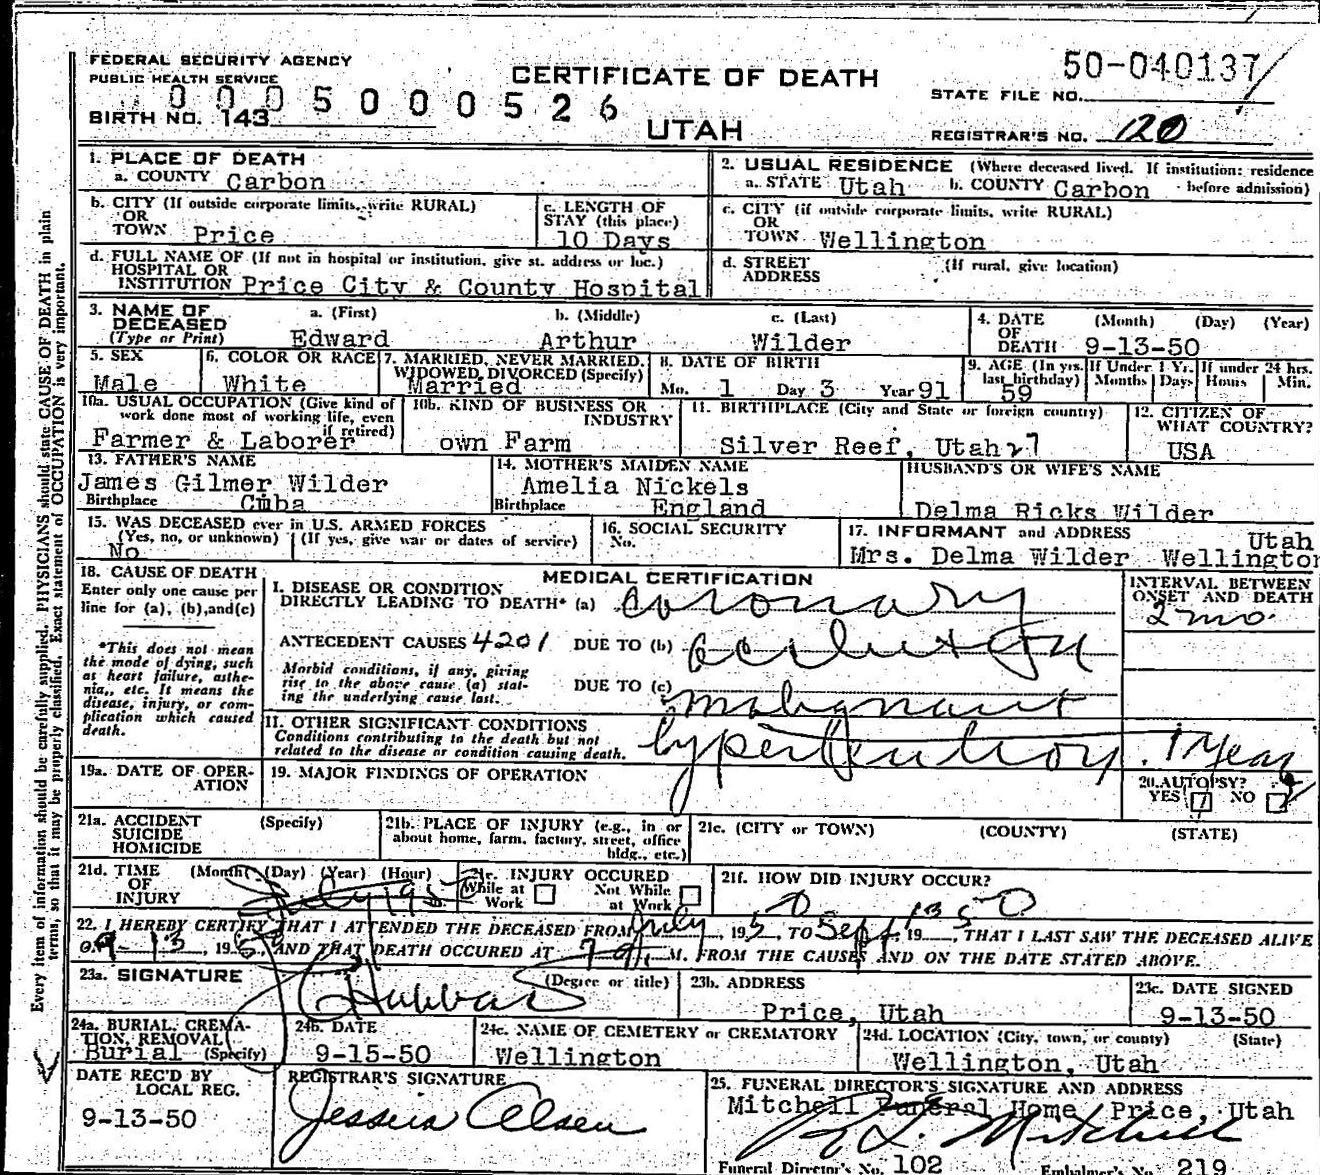 FEDERAL SECURITY AGENCY
PUBLIC HEALTH SERVICE
CERTIFICATE OF DEATH
50-040137
STATE FILE NO.
0005000526
BIRTH NO. 143
UTAH
REGISTRAR'S NO. 120
1. PLACE OF DEATH
a. COUNTY Carbon
2. USUAL RESIDENCE (Where deceased lived. If institution: residence
a. STATE Utah b. COUNTY Carbon before admission)
b. CITY (If outside corporate limits, write RURAL)
OR
TOWN Price
c. LENGTH OF
STAY (this place)
10 Days
c. CITY (if outside corporate limits, write RURAL)
OR
TOWN Wellington
d. FULL NAME OF (If not in hospital or institution, give st. address or loc.)
HOSPITAL OR
INSTITUTION Price City & County Hospital
d. STREET (If rural, give location)
ADDRESS
3. NAME OF
DECEASED
(Type or Print)
a. (First) b. (Middle) c. (Last)
Edward Arthur Wilder
4. DATE (Month) (Day) (Year)
OF
DEATH 9-13-50
5. SEX
Male
6. COLOR OR RACE
White
7. MARRIED, NEVER MARRIED,
WIDOWED, DIVORCED (Specify)
Married
8. DATE OF BIRTH
Mo. 1 Day 3 Year 91
9. AGE (In yrs. last birthday)
59
If Under 1 Yr.
Months Days
If under 24 hrs.
Hours Min.
10a. USUAL OCCUPATION (Give kind of
work done most of working life, even
if retired)
Farmer & Laborer
10b. KIND OF BUSINESS OR
INDUSTRY
own Farm
11. BIRTHPLACE (City and State or foreign country)
Silver Reef, Utah 27
12. CITIZEN OF
WHAT COUNTRY?
USA
13. FATHER'S NAME
James Gilmer Wilder
Birthplace Cuba
14. MOTHER'S MAIDEN NAME
Amelia Nickels
Birthplace England
HUSBAND'S OR WIFE'S NAME
Delma Ricks Wilder
15. WAS DECEASED ever in U.S. ARMED FORCES
(Yes, no, or unknown) (If yes, give war or dates of service)
No
16. SOCIAL SECURITY
No.
17. INFORMANT and ADDRESS Utah
Mrs. Delma Wilder Wellington
18. CAUSE OF DEATH
Enter only one cause per
line for (a), (b), and (c)
*This does not mean
the mode of dying, such
as heart failure, asthe-
nia, etc. It means the
disease, injury, or com-
plication which caused
death.
MEDICAL CERTIFICATION
I. DISEASE OR CONDITION
DIRECTLY LEADING TO DEATH* (a) Coronary
INTERVAL BETWEEN
ONSET AND DEATH
2 mo.
ANTECEDENT CAUSES 4201 DUE TO (b)
Morbid conditions, if any, giving
rise to the above cause (a) stat-
ing the underlying cause last.
DUE TO (c) malignant
II. OTHER SIGNIFICANT CONDITIONS
Conditions contributing to the death but not
related to the disease or condition causing death.
hypertension. 1 Year
19a. DATE OF OPER-
ATION
19. MAJOR FINDINGS OF OPERATION
20. AUTOPSY?
YES NO
21a. ACCIDENT (Specify)
SUICIDE
HOMICIDE
21b. PLACE OF INJURY (e.g., in or
about home, farm, factory, street, office
bldg., etc.)
21c. (CITY or TOWN) (COUNTY) (STATE)
21d. TIME (Month) (Day) (Year) (Hour)
OF
INJURY
21e. INJURY OCCURED
While at Work Not While at Work
21f. HOW DID INJURY OCCUR?
22. I HEREBY CERTIFY THAT I ATTENDED THE DECEASED FROM July, 1950 TO Sept 13, 1950, THAT I LAST SAW THE DECEASED ALIVE
ON 9-13, 1950, AND THAT DEATH OCCURED AT M. FROM THE CAUSES AND ON THE DATE STATED ABOVE.
23a. SIGNATURE (Degree or title)
23b. ADDRESS
Price, Utah
23c. DATE SIGNED
9-13-50
24a. BURIAL, CREMA-
TION, REMOVAL
Burial (Specify)
24b. DATE
9-15-50
24c. NAME OF CEMETERY or CREMATORY
Wellington
24d. LOCATION (City, town, or county) (State)
Wellington, Utah
DATE REC'D BY
LOCAL REG.
9-13-50
REGISTRAR'S SIGNATURE
Jessie Olsen
25. FUNERAL DIRECTOR'S SIGNATURE AND ADDRESS
Mitchell Funeral Home, Price, Utah
Mitchell
Funeral Director's No. 102 Embalmer's No. 219
Every item of information should be carefully supplied. PHYSICIANS should state CAUSE OF DEATH in plain
terms, so that it may be properly classified. Exact statement of OCCUPATION is very important.